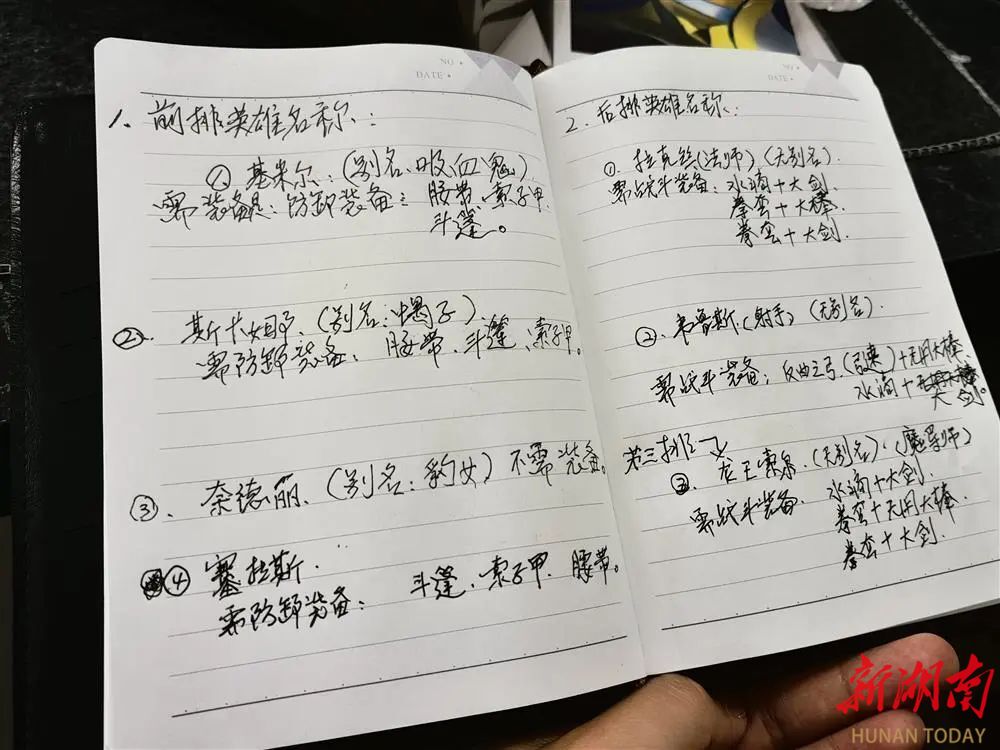 NO
DATE
1、前排英雄名称：
① 基米尔：(别名、吸血鬼)
需装备是：防卸装备：腰带、索子甲、
斗篷。
②、斯卡姐、(别名：蝎子)、
需防卸装备、腰带、斗篷、索子甲。
③、奈德丽、(别名：豹女)不需装备。
④ 塞拉斯、
需防卸装备： 斗篷、索子甲、腰带。
NO
DATE
2、后排英雄名称：
①、拉克丝(法师)(无别名)、
需战斗装备：水滴+大剑、
拳套+大棒、
拳套+大剑、
②、韦鲁斯、(射手)(无别名)、
需战斗装备：反曲之弓、(引速)+无用大棒、
水滴+
大剑。
第三排
③、龙王索泉、(无别名)、(魔导师)
需战斗装备、水滴+大剑、
拳套+无用大棒、
拳套+大剑、
新湖南
HUNAN TODAY